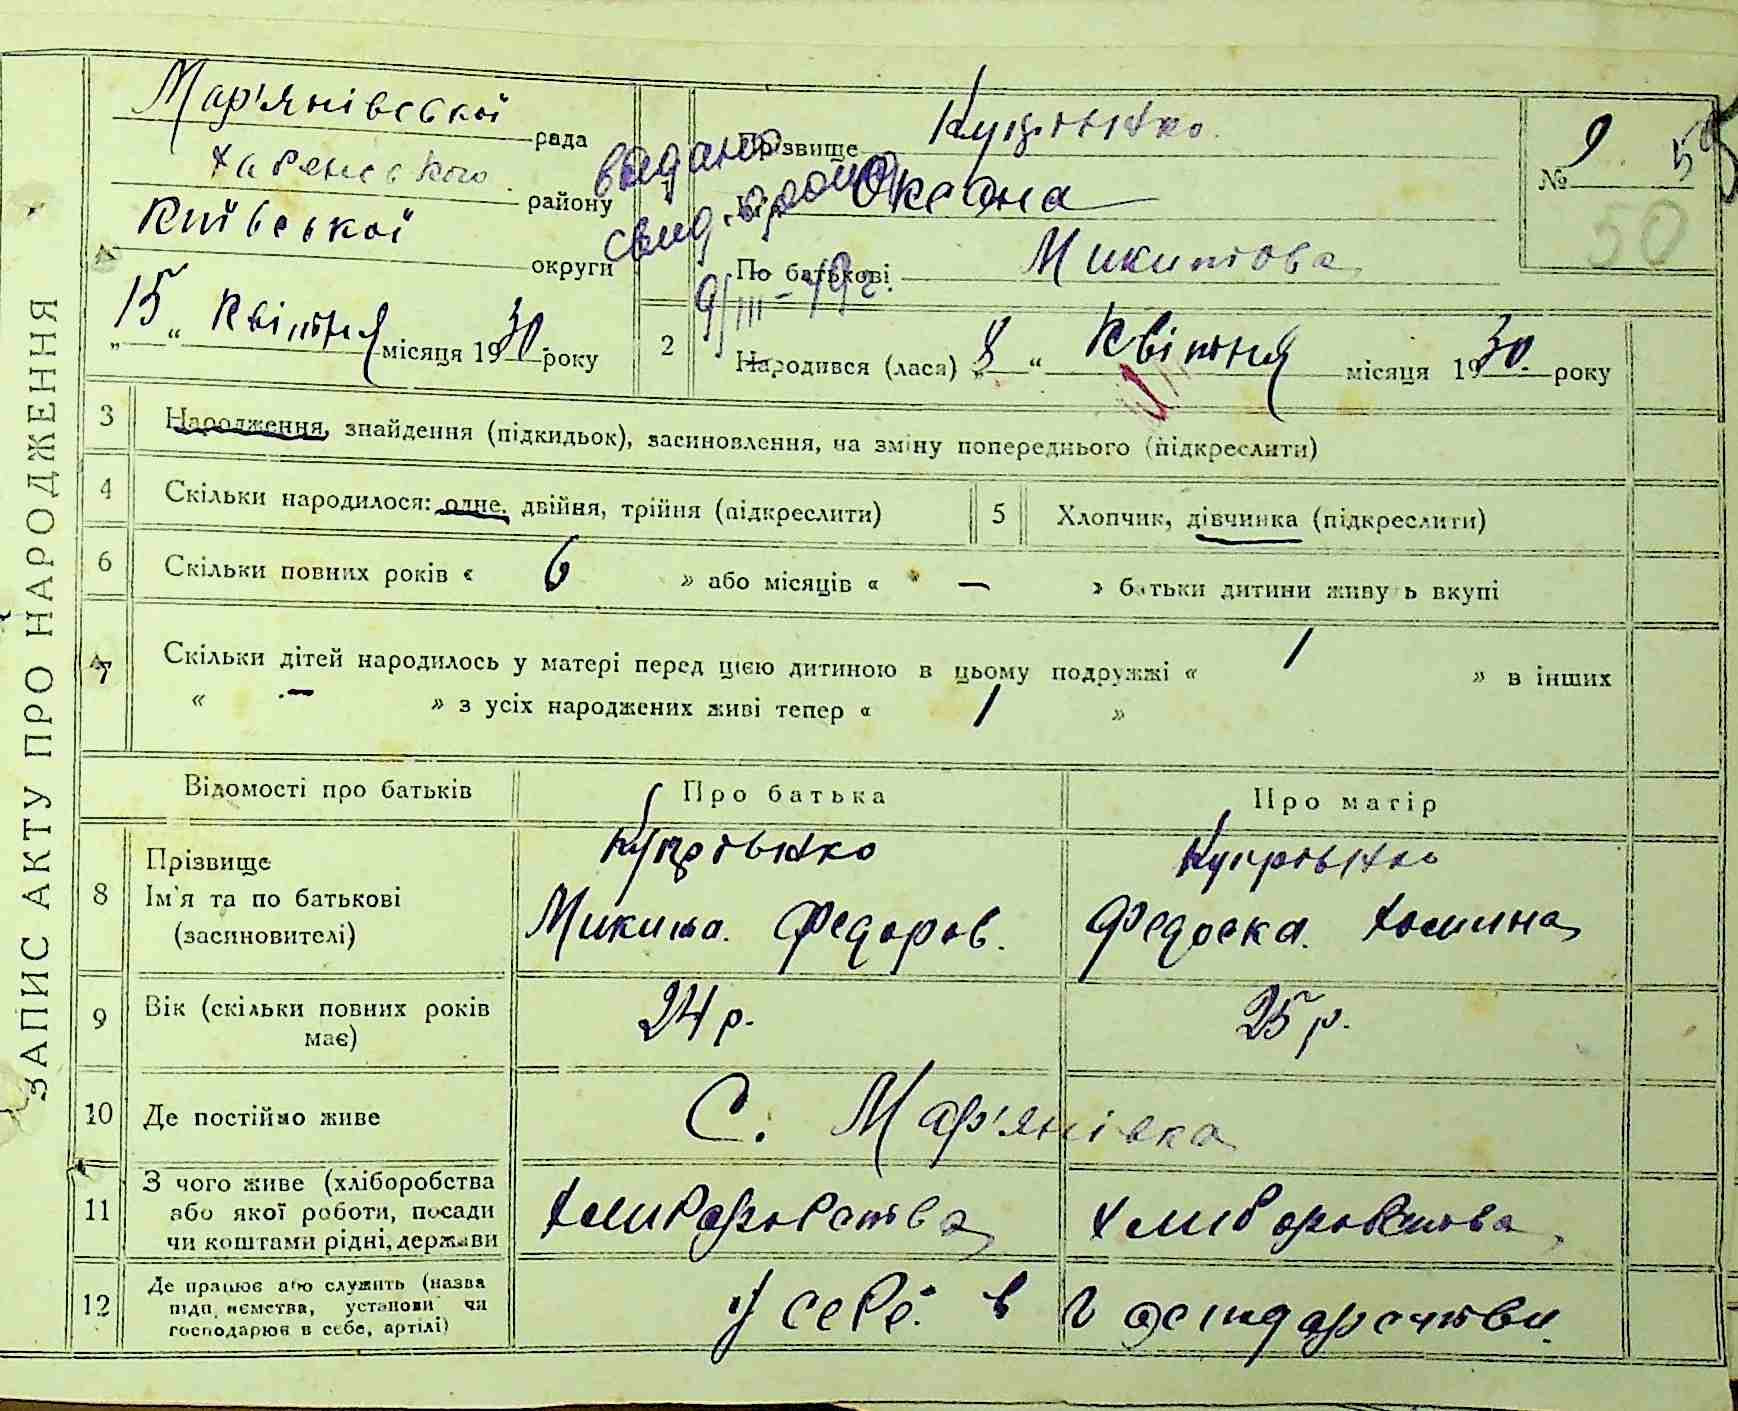 ЗАПИС АКТУ ПРО НАРОДЖЕННЯ
Мар'янівської рада
Хабенського району
Київської округи
„15“ Квітня місяця 1930 року
Прізвище Купріенко
Оксана
По батькові Микитова
видано
свид.
9/III-49г.
№ 9
50
2 Народився (лася) „8“ Квітня місяця 1930. року
3 Народження, знайдення (підкидьок), засиновлення, на зміну попереднього (підкреслити)
4 Скільки народилося: одне, двійня, трійня (підкреслити) 5 Хлопчик, дівчинка (підкреслити)
6 Скільки повних років « 6 » або місяців « — » батьки дитини живуть вкупі
7 Скільки дітей народилось у матері перед цією дитиною в цьому подружжі « 1 » в інших
« — » з усіх народжених живі тепер « 1 »
Відомості про батьків Про батька Про матір
8 Прізвище Купріенко Купріенко
Ім'я та по батькові Микита. Федоров. Федоска. Хомина
(засиновителі)
9 Вік (скільки повних років має) 24 р. 25 р.
10 Де постійно живе С. Мар'янівка
11 З чого живе (хліборобства або якої роботи, посади чи коштами рідні, держави Хлиборобства Хлиборобства
12 Де працює або служить (назва підприємства, установи чи господарює в себе, артілі) У себе в господарстви.